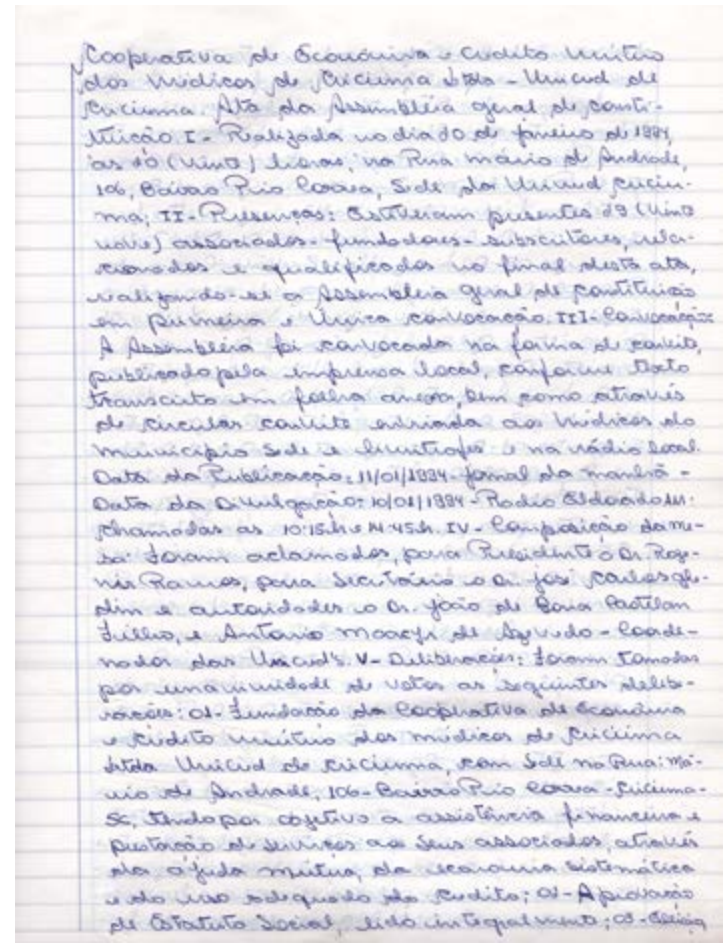 Cooperativa de Economia e Credito Mútuo
dos Médicos de Criciuma Ltda - Unicred de
Criciuma. Ata da Assembléia geral de consti-
tuicão. I - Realizada no dia 20 de janeiro de 1994,
as 20 (vinte) horas, na Rua mário de Andrade,
106, Bairro Pio Correa, Sede da Unicred Criciu-
ma; II - Presenças: Estiveram presentes 29 (vinte
nove) associados - fundadores - subscritores, rela-
cionados e qualificados no final desta ata,
realizando-se a Assembléia geral de constituicão
em primeira e Única convocação. III - Convocação:
A Assembléia foi convocada na forma de convite,
publicado pela imprensa local, conforme texto
transcrito em folha anexa, bem como através
de circular convite enviada aos médicos do
município Sede e limítrofes e na rádio local.
Data da Publicação: 11/01/1994 - jornal da manhã -
Data da Divulgação: 10/01/1994 - Radio Eldorado
chamadas as 10:15.h e 14:45.h. IV - Composição da me-
sa: foram aclamados, para Presidente o Dr. Rog-
Ramos, para Secretário o Dr. josé carlos
e autoridades o Dr. joão de
Filho, e Antonio moacyr de Azevedo - Coorde-
nador das Unicred's. V - Deliberações: foram tomadas
por unanimidade de votos as seguintes delibe-
rações: 01 - Fundacão da Cooperativa de Economia
e Crédito mútuo dos médicos de Criciuma
Ltda Unicred de Criciuma, com Sede na Rua: Má-
rio de Andrade, 106 - Bairro Pio Correa - Criciuma -
SC, tendo por objetivo a assistência financeira e
prestação de serviços aos seus associados, através
da ajuda mútua, da economia sistemática
e do uso adequado do credito; 02 - Aprovacão
de Estatuto Social, lido integralmente; 03 - Eleição